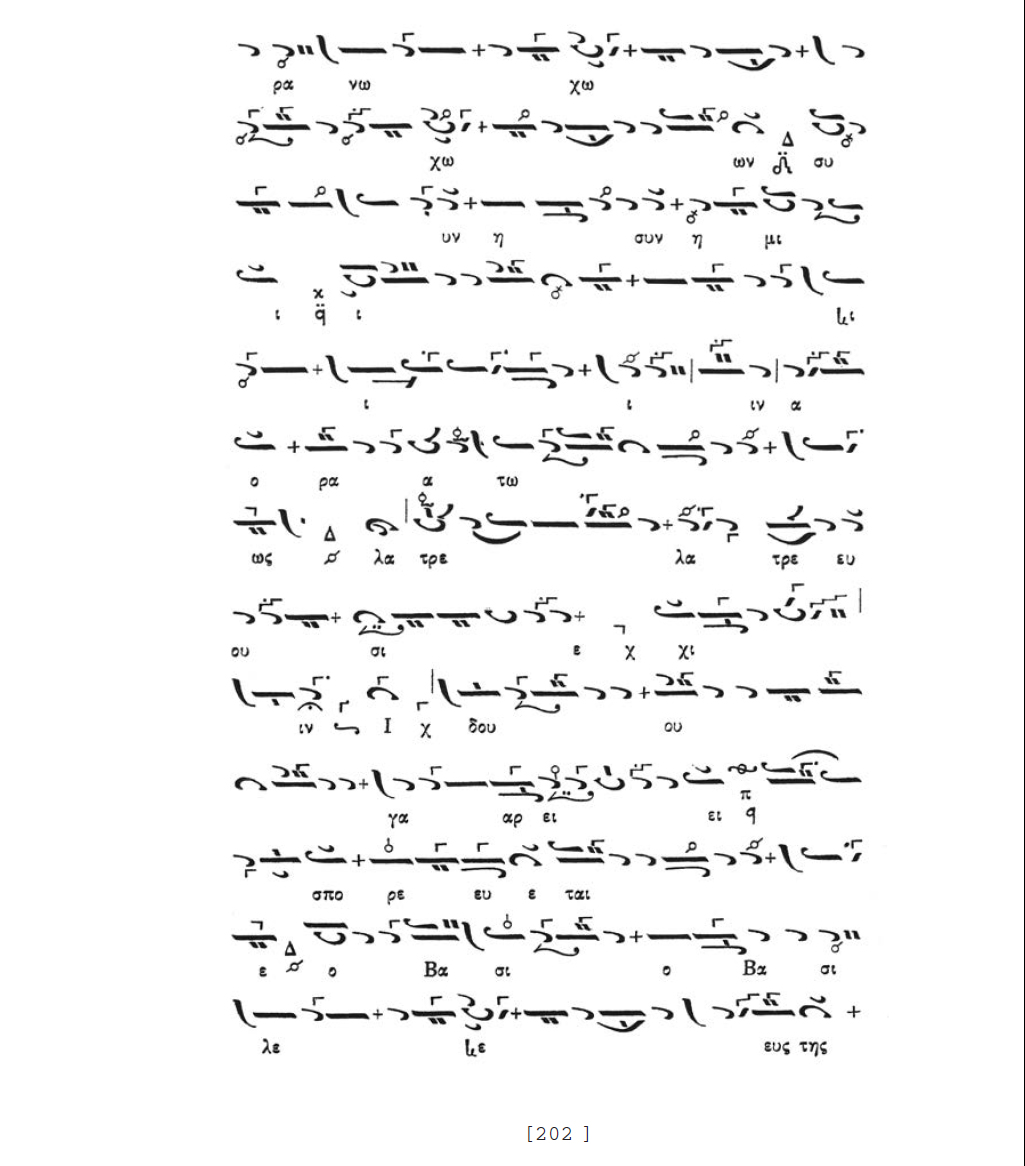 ρα νω χω
χω ων συ
υν η συν η μι
ι ι
ι ι ιν α
ο ρα α τω
ως λα τρε λα τρε ευ
ου σι ε χ χι
ιν Ι χ δου ου
γα αρ ει ει
σπο ρε ευ ε ται
ε ο Βα σι ο Βα σι
λε ευς της
[202 ]